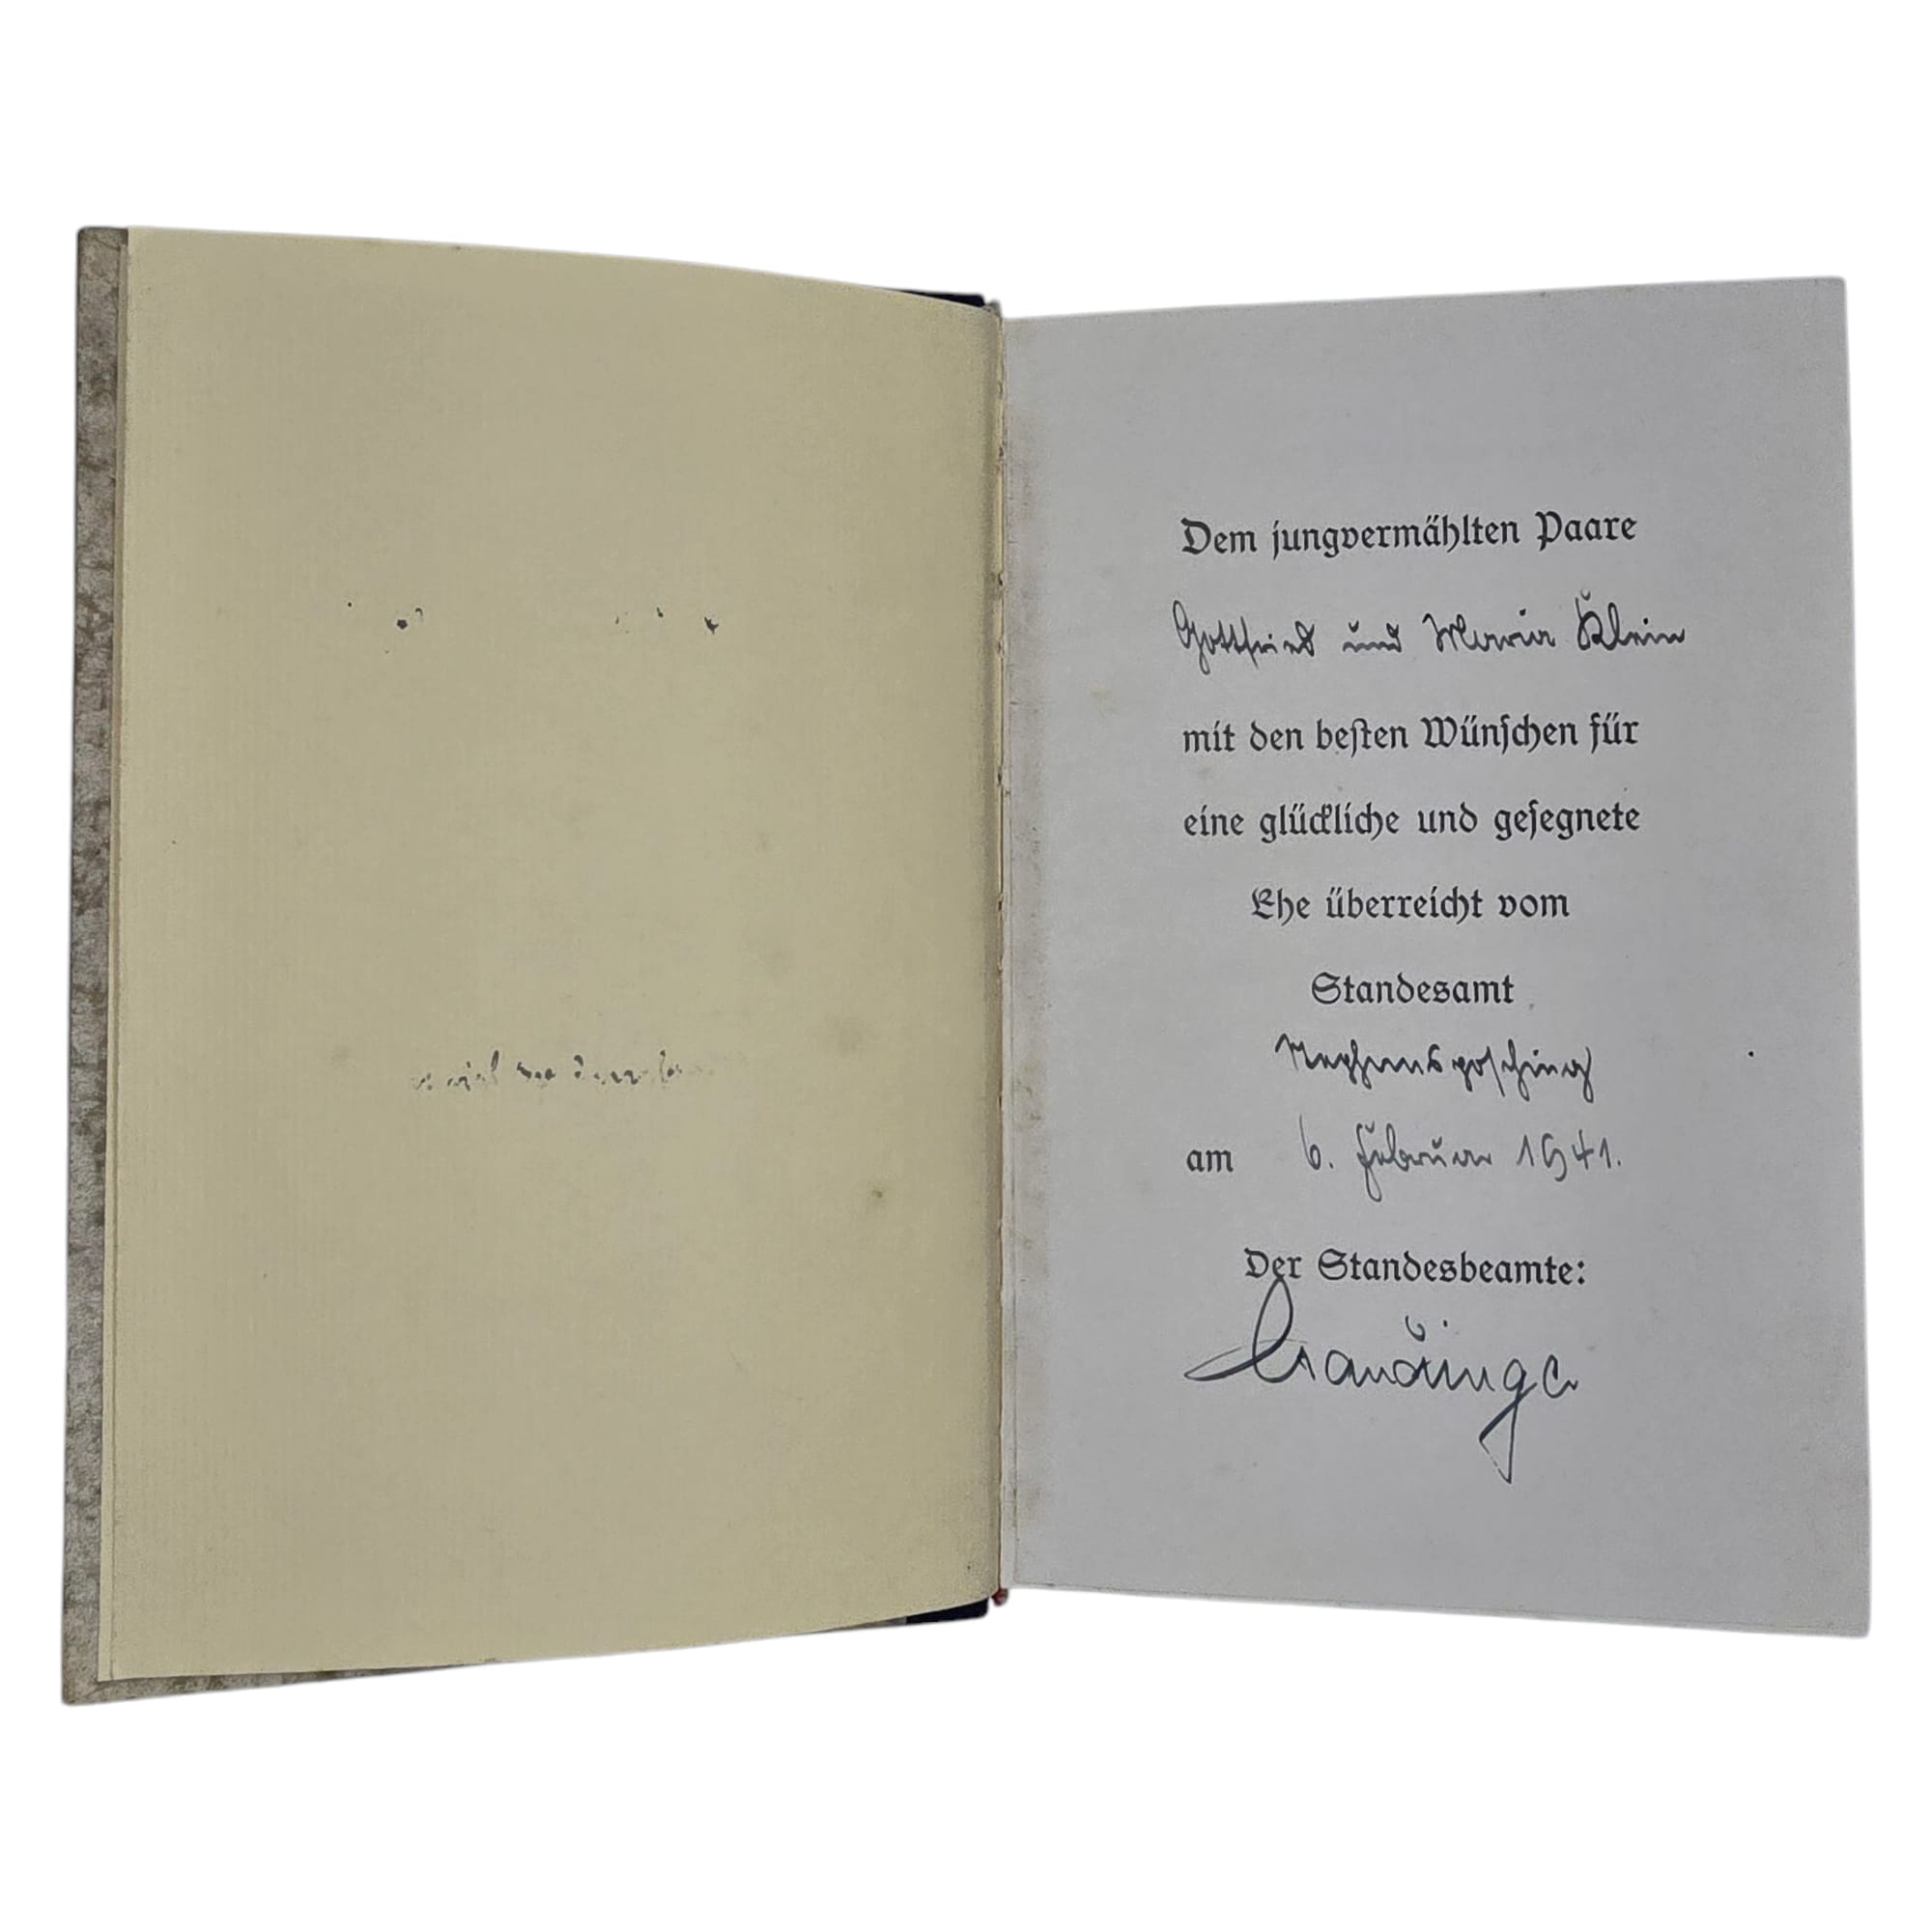 Dem jungvermählten Paare
Gottfried und Maria Klein
mit den besten Wünschen für
eine glückliche und gesegnete
Ehe überreicht vom
Standesamt
am 6. Februar 1941.
Der Standesbeamte: